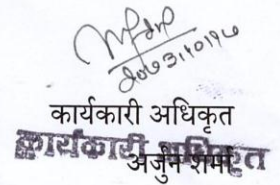 २०७३।१०।१७
कार्यकारी अधिकृत
कार्यकारी अधिकृत
अर्जुन शर्मा